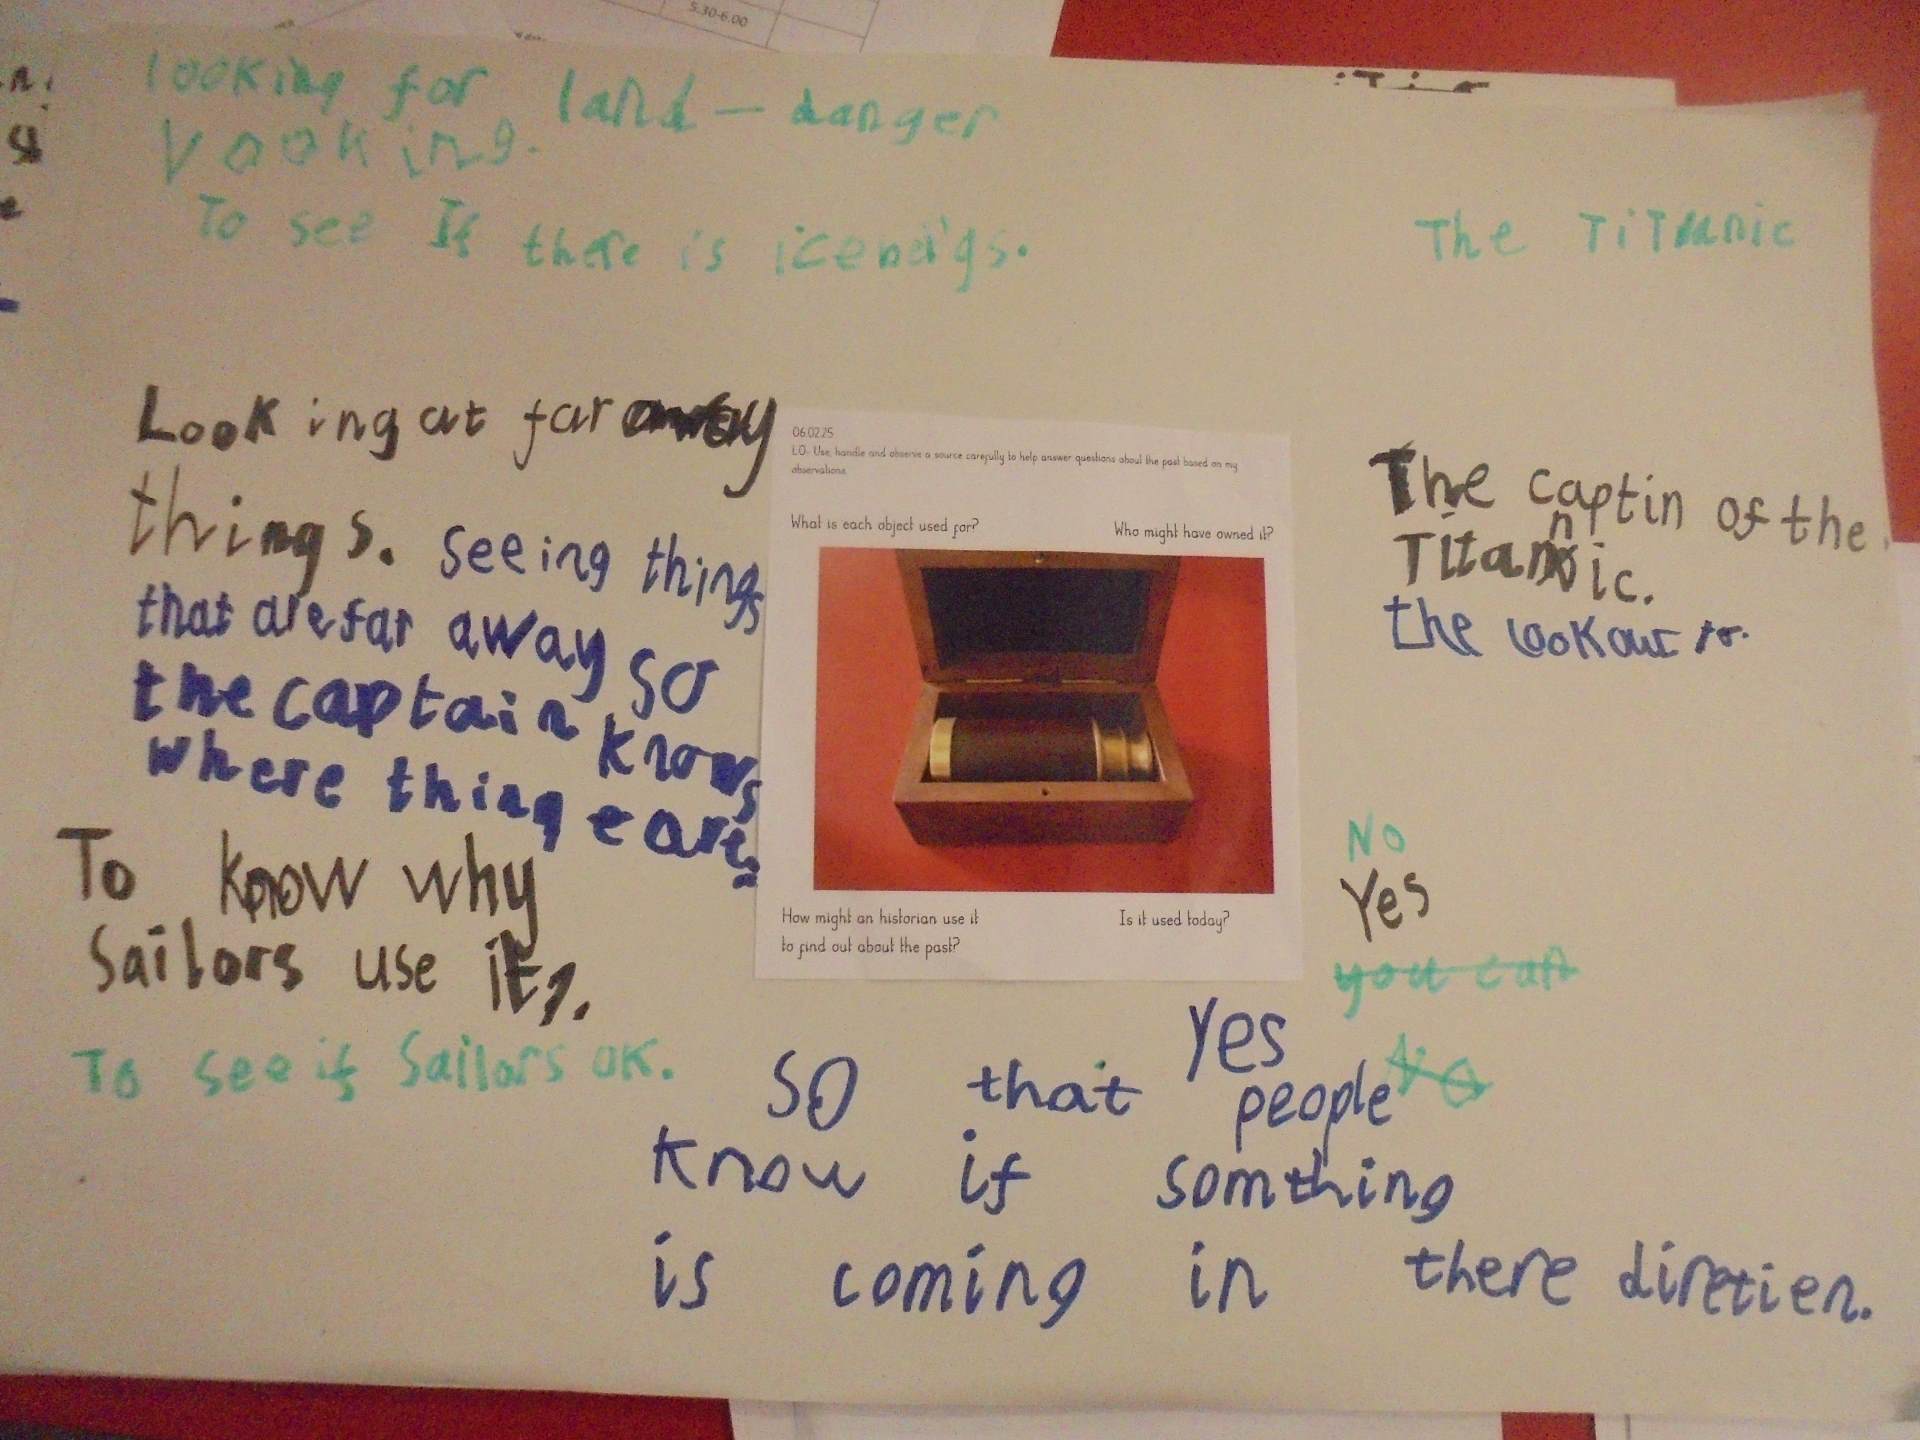 5.30-6.00
looking for land - danger
Vooking.
To see If there is icebeigs.
The TiTanic
Looking at far away
things. seeing things
that are far away so
the captain knows
where thing e are.
To know why
Sailors use it,.
To see if Sailors ok.
06.02.25
LO- Use, handle and observe a source carefully to help answer questions about the past based on my
observations.
What is each object used for?
Who might have owned it?
How might an historian use it
to find out about the past?
Is it used today?
The captin of the
Titanic.
the lookout
No
Yes
you can
No
Yes
so that people
know if somthing
is coming in there diretien.